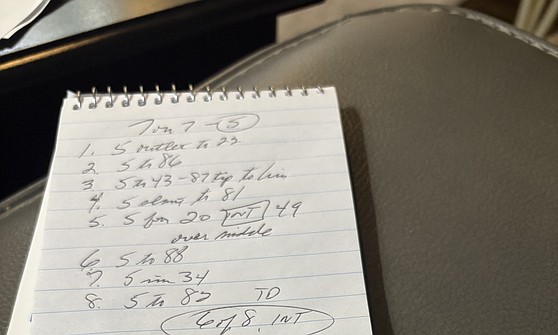 7 on 7 - 5
1. 5 outlet to 23
2. 5 to 86
3. 5 to 43 - 87 tip to him
4. 5 to 81
5. 5 for 20 INT 49
over middle
6. 5 to 88
7. 5 inc 34
8. 5 to 82 TD
6 of 8, INT